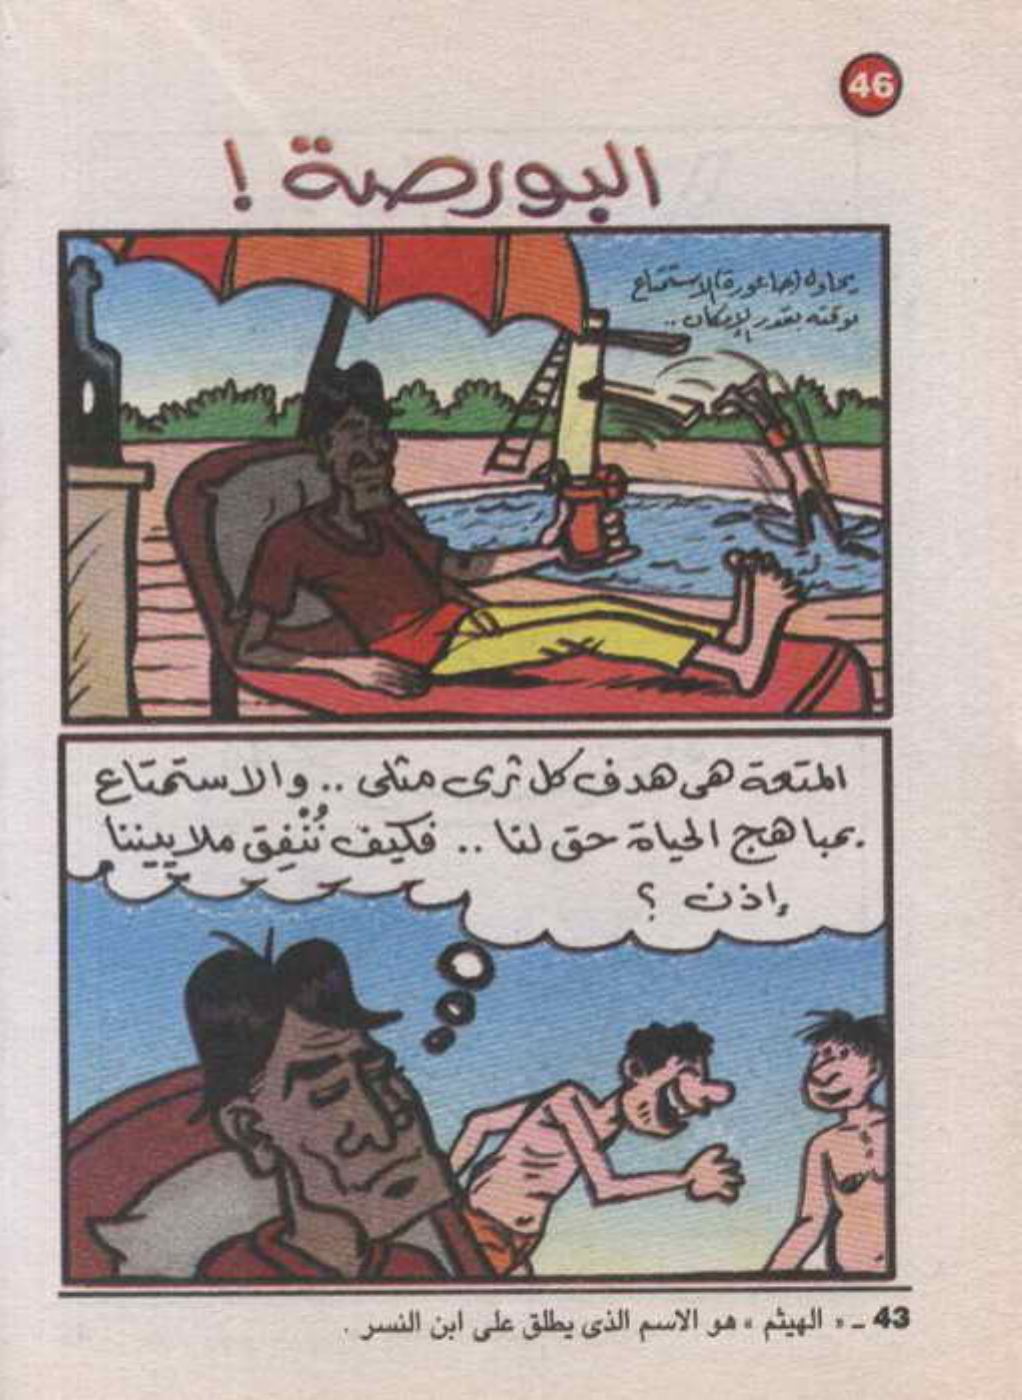 46
البورصة !
يحاول (صاعورة) الاستمتاع
بوقته بقدر الإمكان ..
المتعة هى هدف كل ثرى مثلى .. والاستمتاع
بمباهج الحياة حق لنا .. فكيف نُنْفِق ملاييننا
إذن ؟
43 ـ « الهيثم » هو الاسم الذى يطلق على ابن النسر .